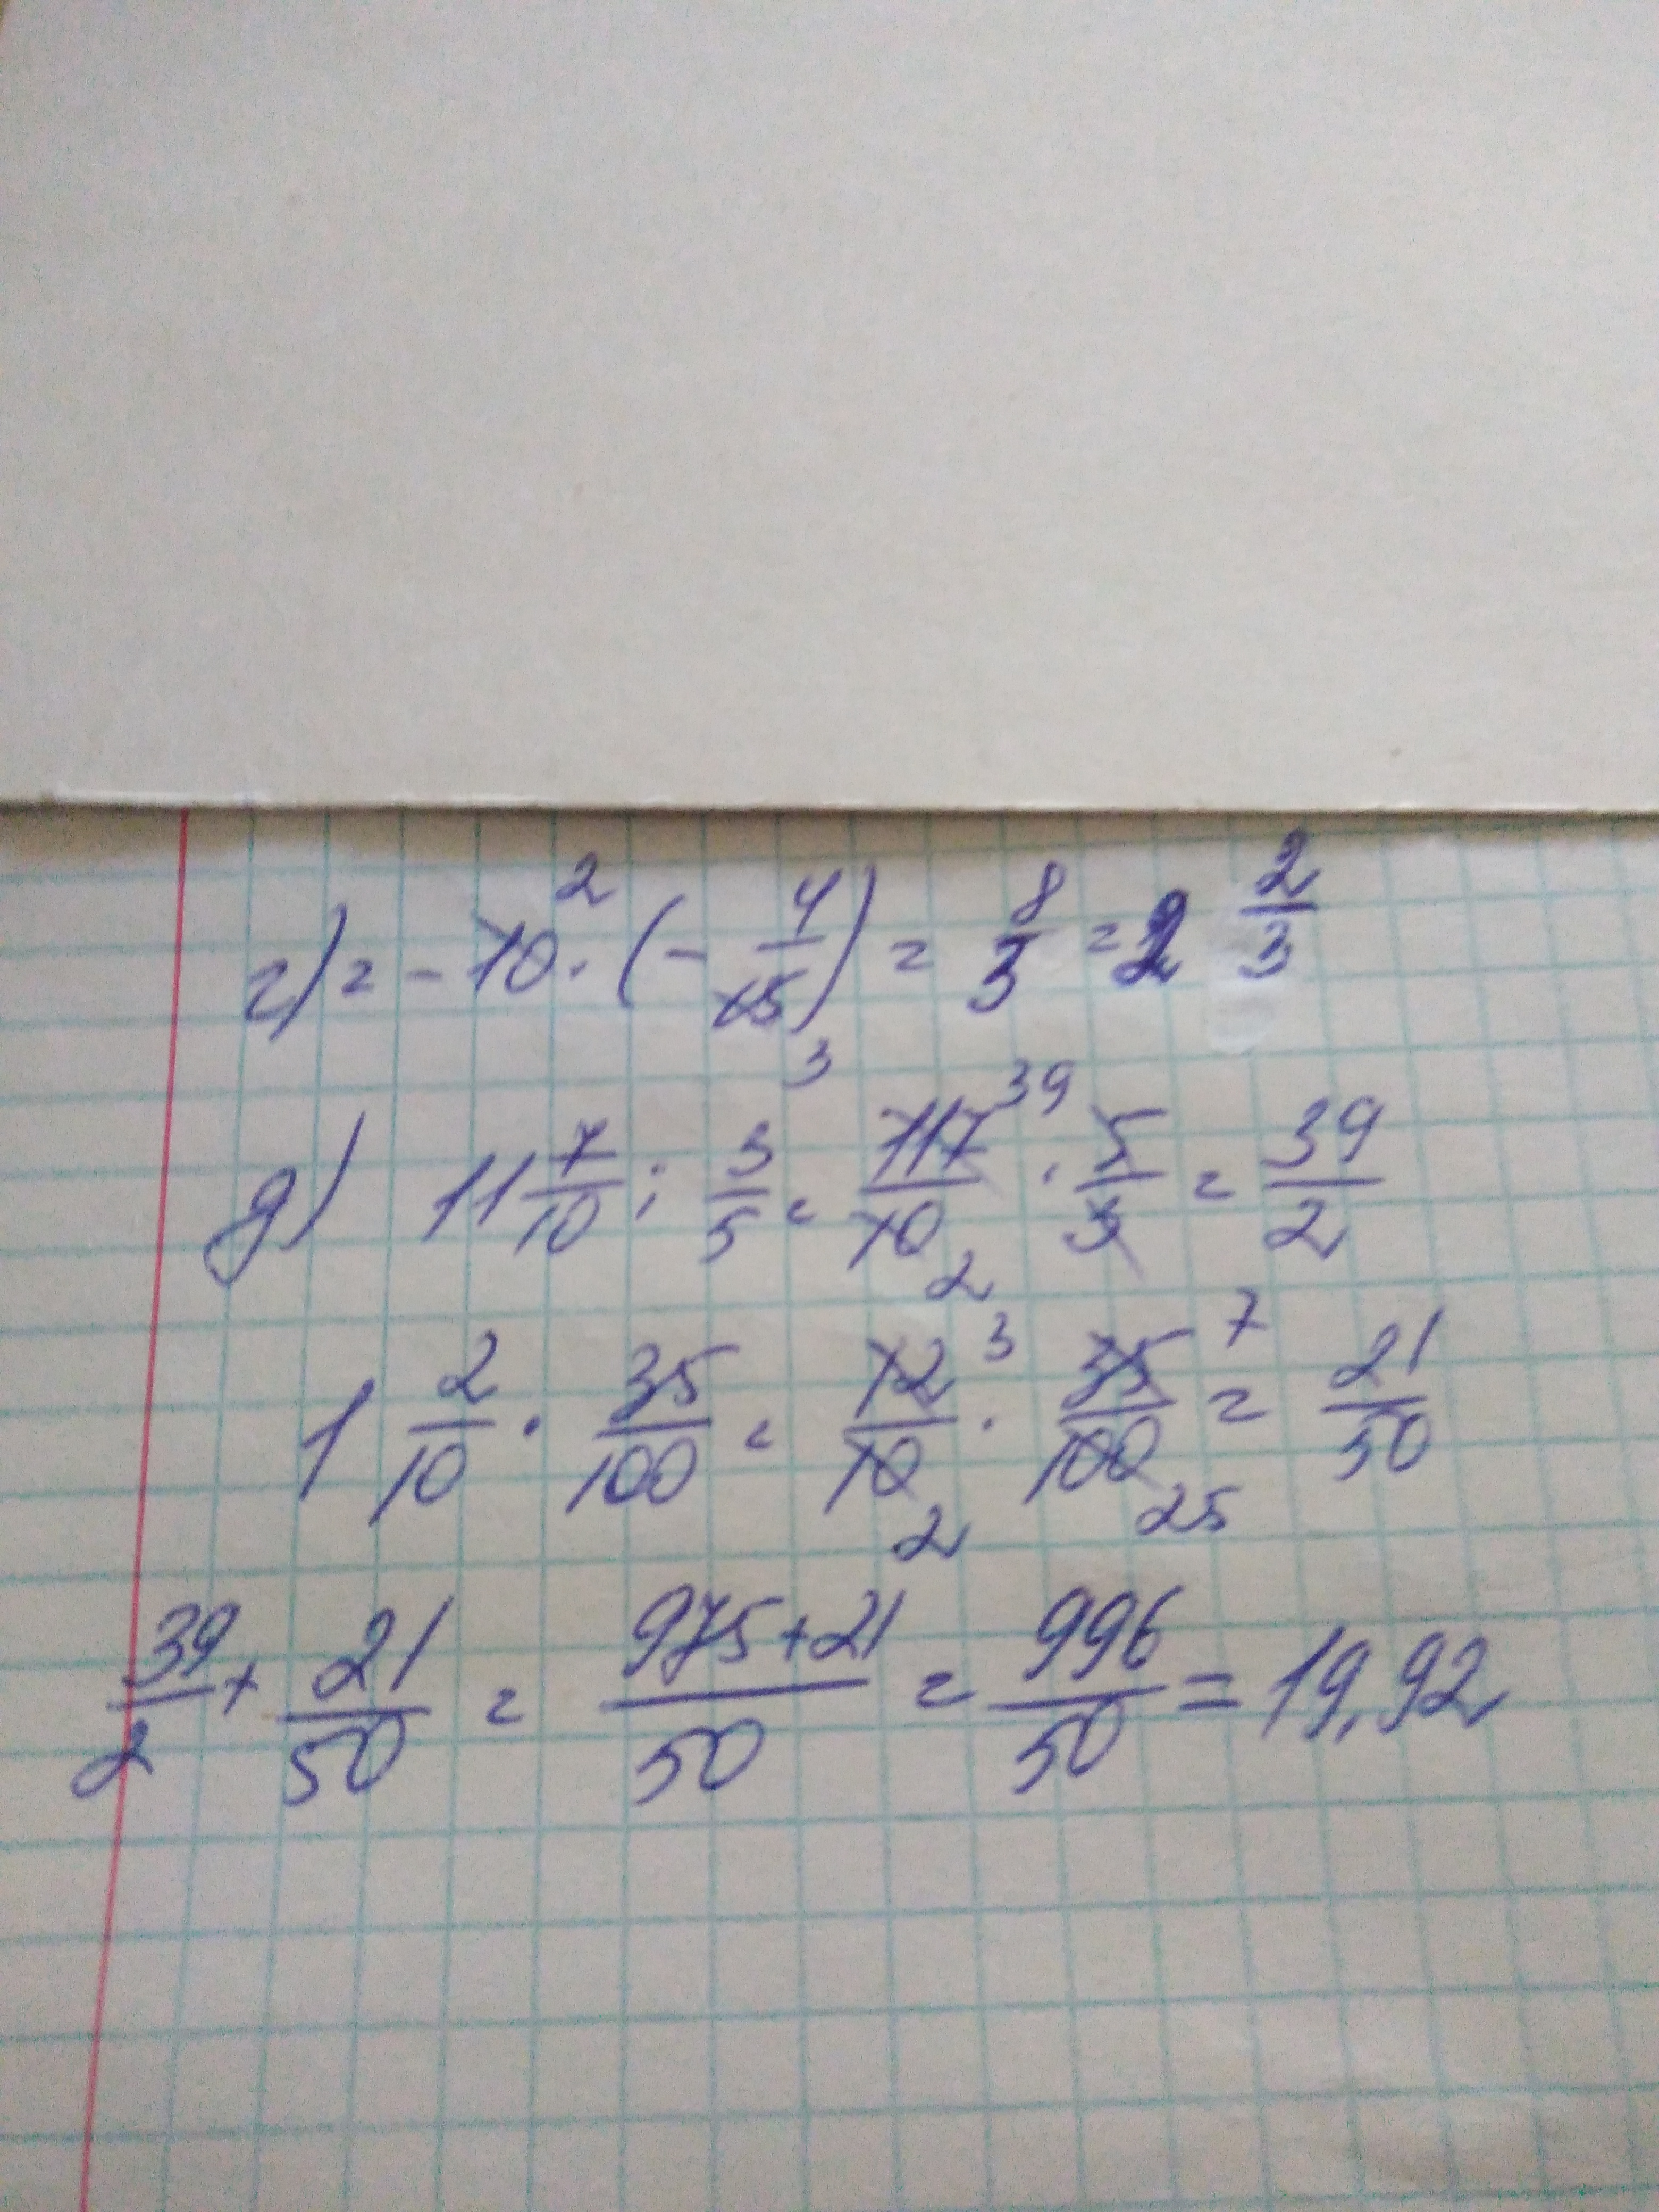 г) = - 10² · (- 4/15 3) = 8/3 = 2 2/3
д) 11 7/10 : 3/5 = 117/10 39 2 · 5/3 = 39/2
1 2/10 · 35/100 = 12/10 3 2 · 35/100 7 25 = 21/50
39/2 + 21/50 = 975+21/50 = 996/50 = 19,92